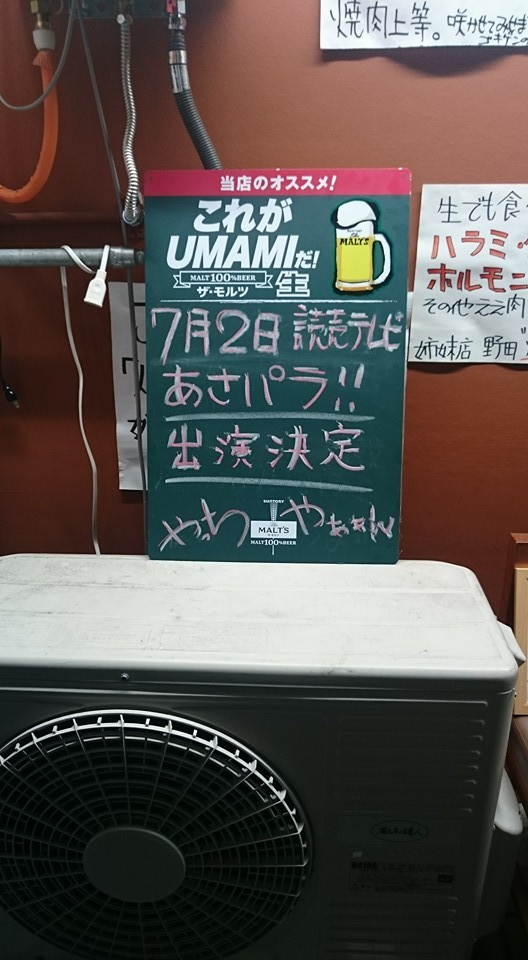 焼肉上等。
当店のオススメ!
これが
UMAMIだ!
MALT 100% BEER
ザ・モルツ
生
MALT'S
7月2日 読売テレビ
あさパラ!!
出演決定
SUNTORY
The
MALT'S
MALT 100% BEER
やっち
生でも食
ハラミ
ホルモン
その他ええ肉
姉妹店 野田